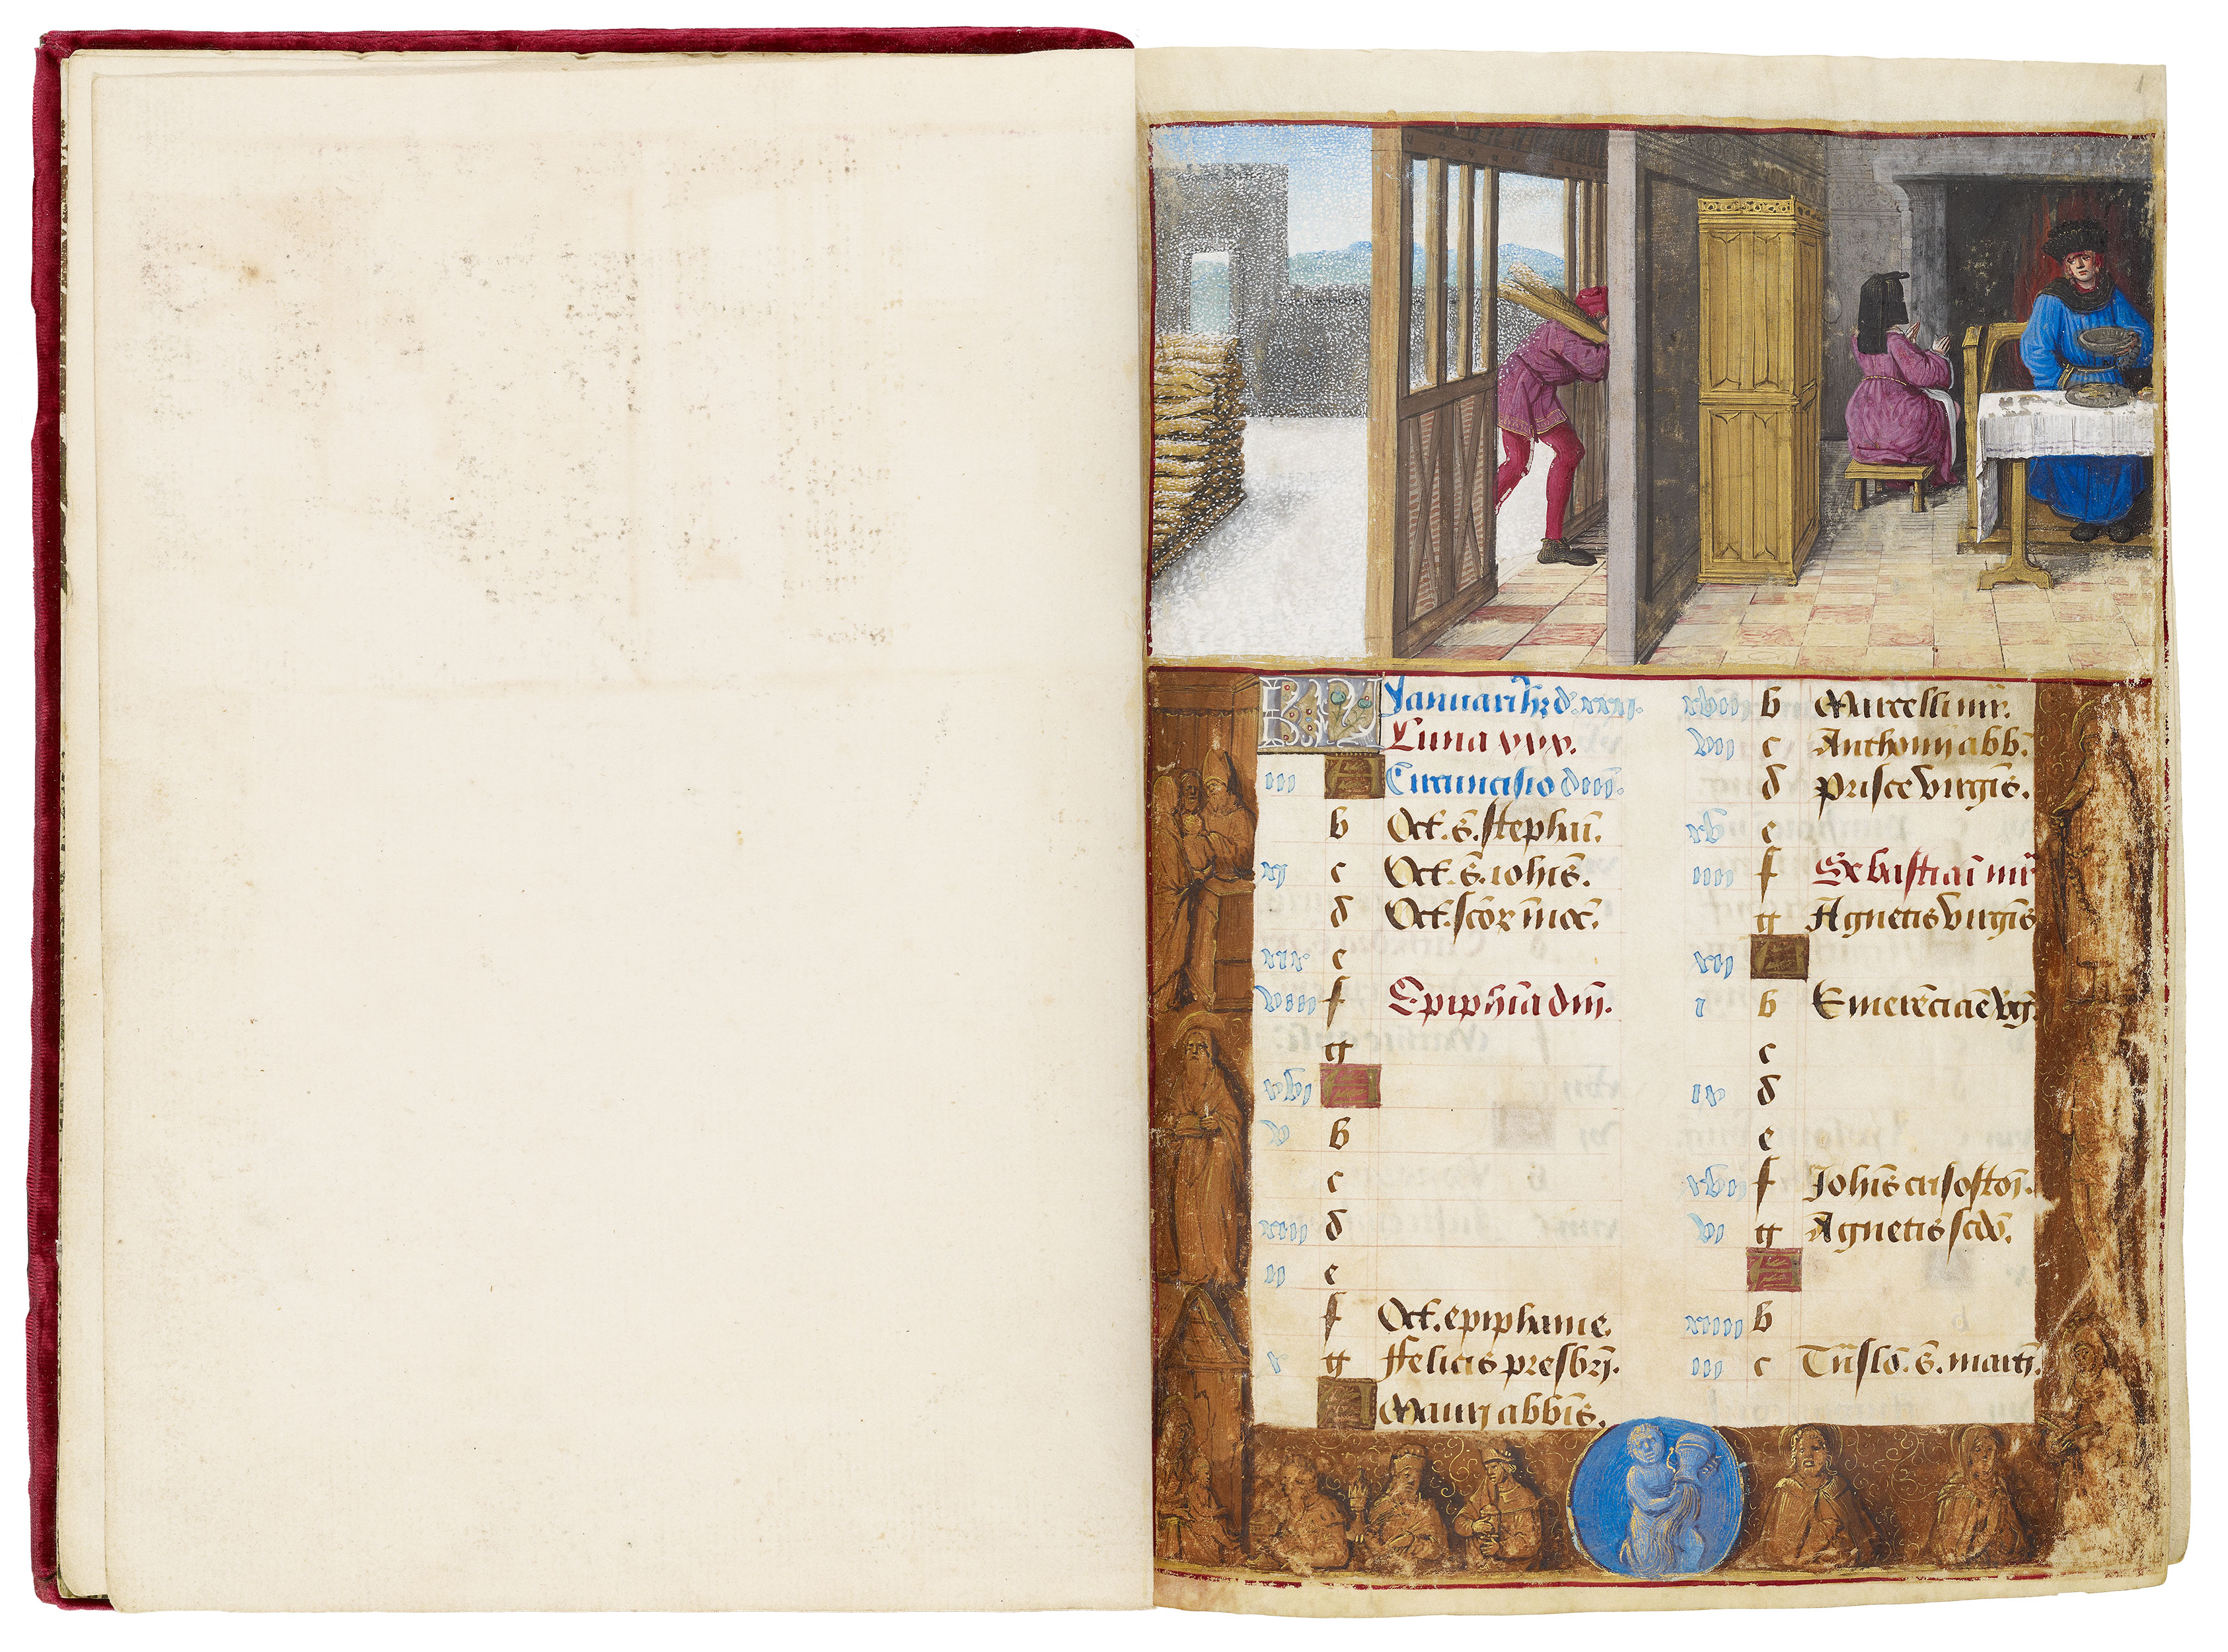 1
KL Januari⁹ hʒ d. xxxi.
Luna xxx.
iii A Circuncisio dñi.
b Oct. s̄. stephāi.
xi c Oct. s̄. iohīs.
d Oct. scōꝝ īnoc̄.
xix e
viii f Epiphīa dñi.
g
xvi A
v b
c
xiii d
ii e
f Oct. epiphanie.
x g ffelicis presbrī.
A Maurj abbīs.
xviii b Marcelli mr̄.
vii c Anthonii abb̄.
d Prisce virgīs.
xv e
iiii f Sebastiāi mr̄
g Agnetis virgīs
xii A
i b Emerēciāe v̄g.
c
ix d
e
xvii f Johīs crisostoī.
vi g Agnetis scdō.
A
xiiii b
iii c s̄.